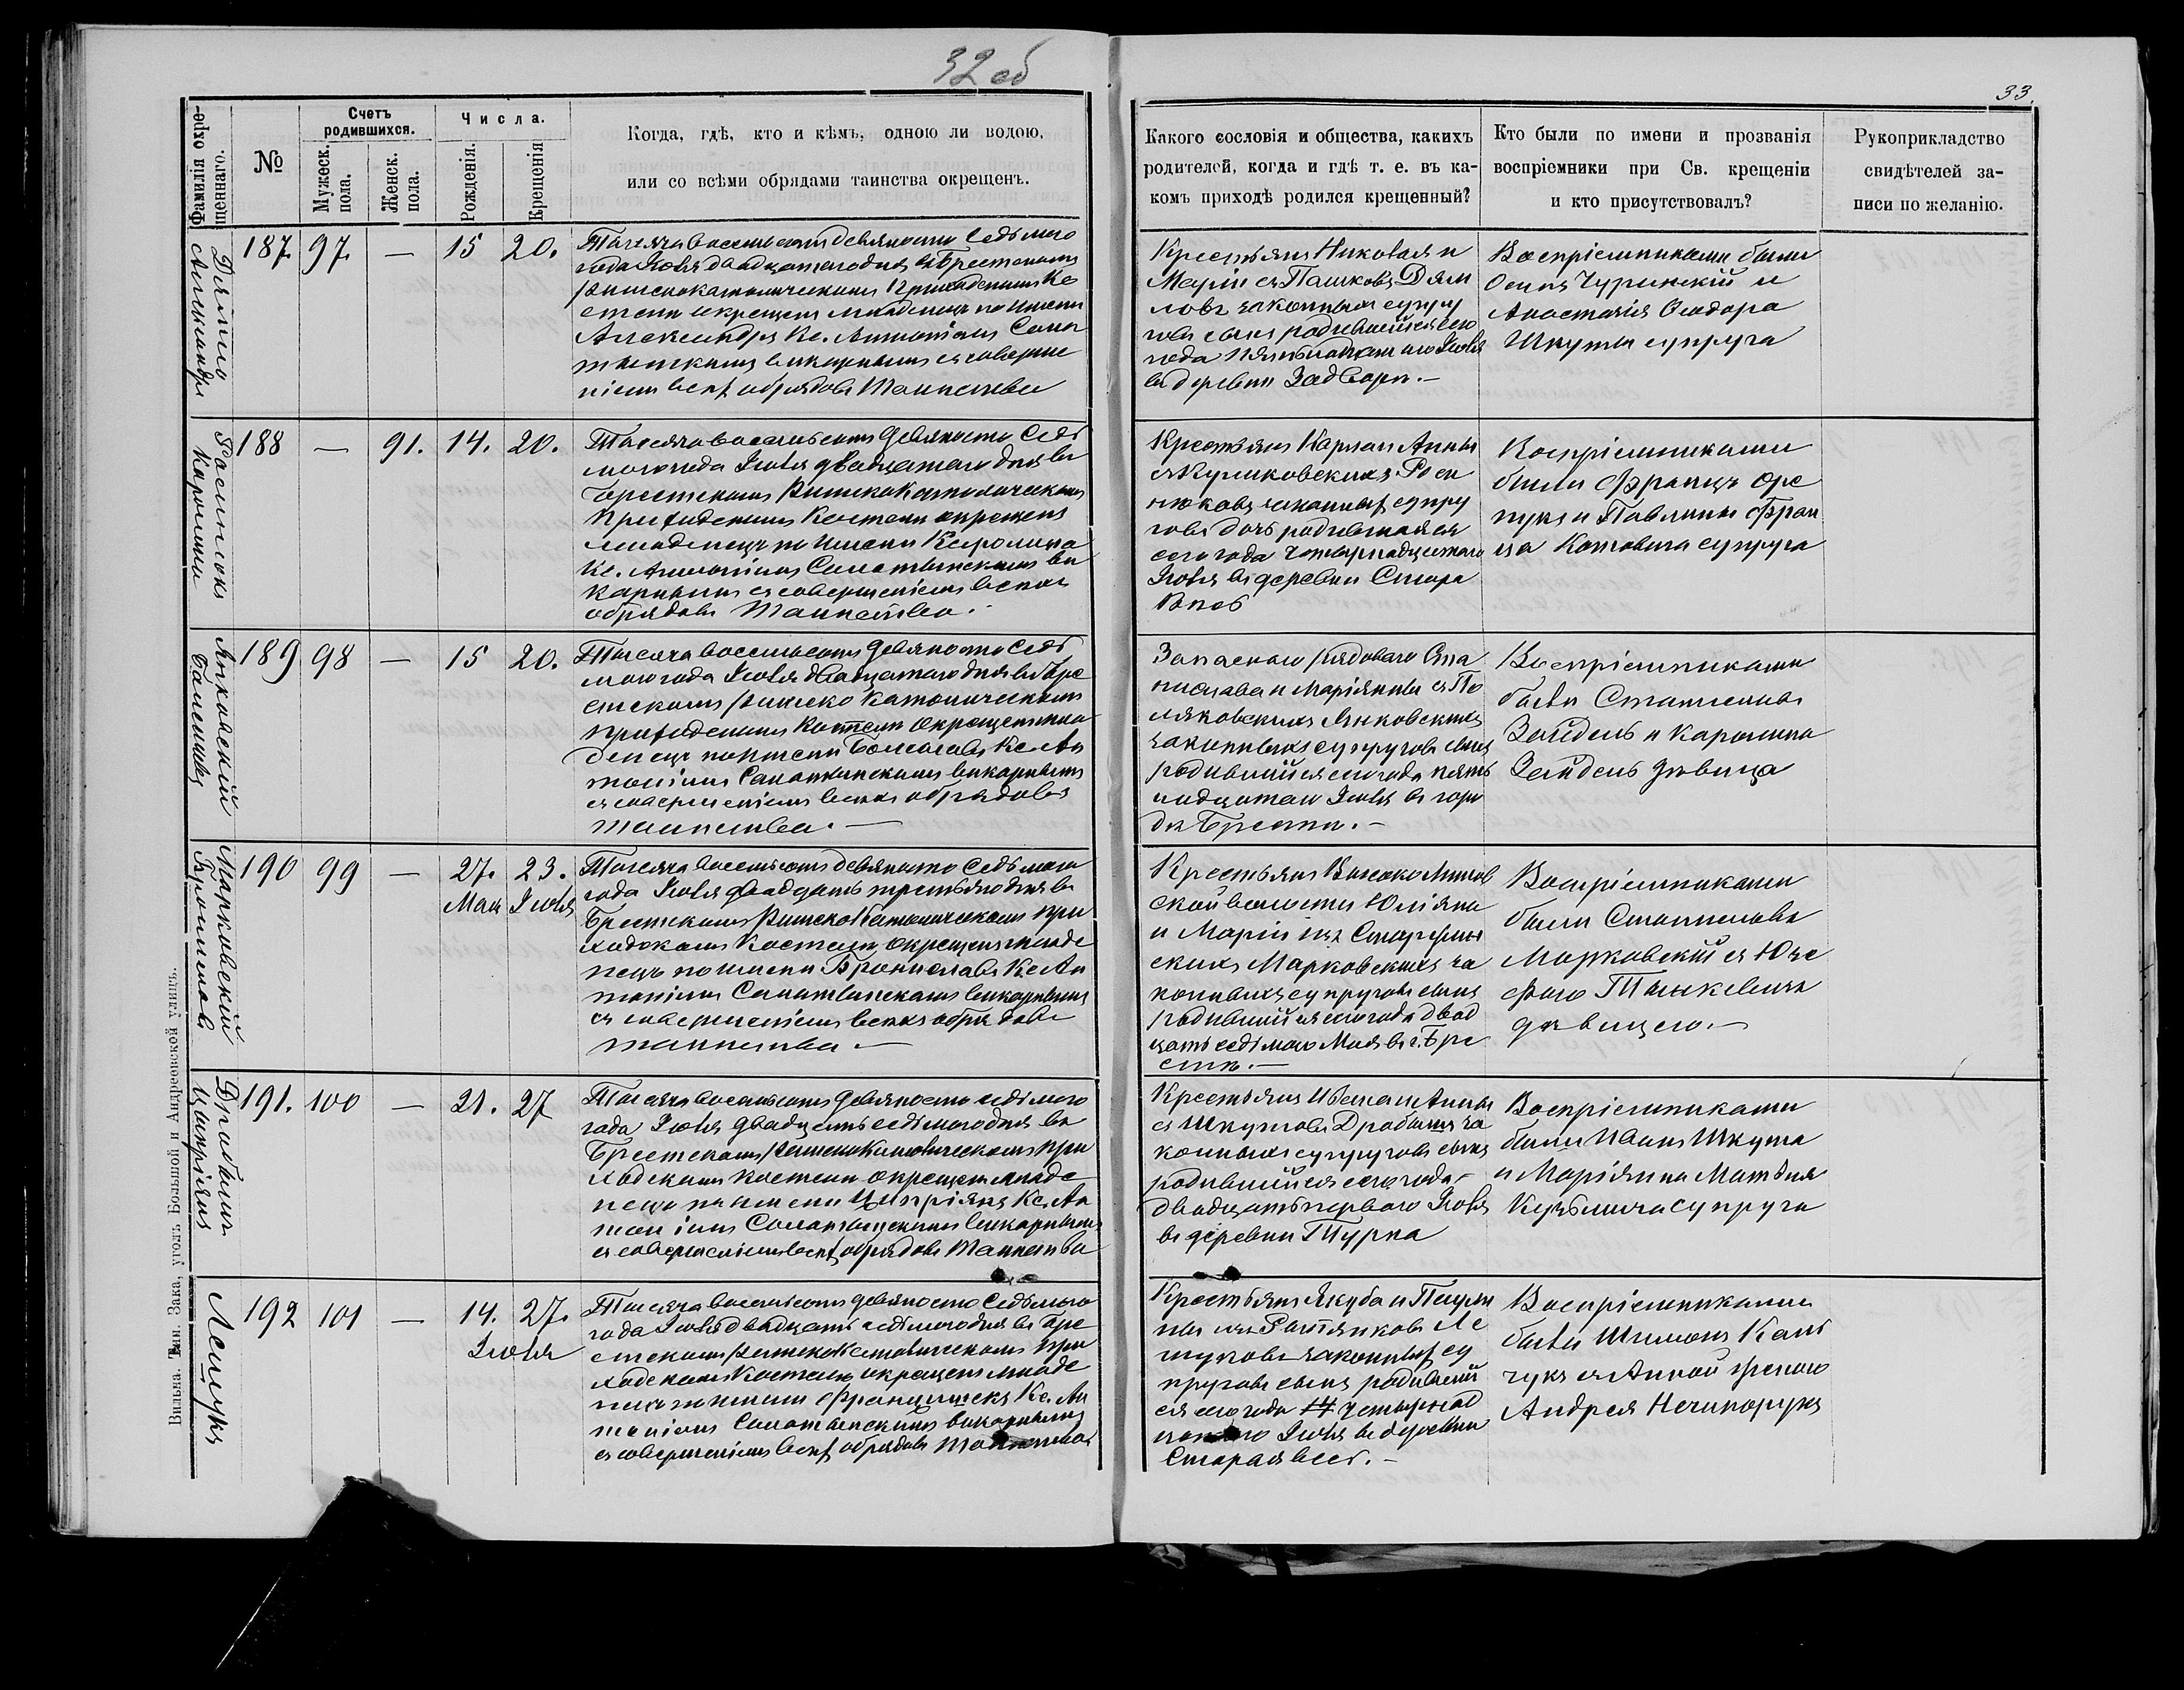 32 об
33.
Фамилія окре-
щеннаго.
№
Счетъ
родившихся.
Мужеск.
пола.
Женск.
пола.
Числа.
Рожденія.
Крещенія
Когда, гдѣ, кто и кѣмъ, одною ли водою,
или со всѣми обрядами таинства окрещенъ.
Какого сословія и общества, какихъ
родителей, когда и гдѣ т. е. въ ка-
комъ приходѣ родился крещенный?
Кто были по имени и прозванія
воспріемники при Св. крещеніи
и кто присутствовалъ?
Рукоприкладство
свидѣтелей за-
писи по желанію.
Александръ
187. 97. — 15 20.
Тысяча восемьсотъ девяносто седьмого
года Іюля двадцатаго дня въ Брестскомъ
Римскокатолическомъ Приходскомъ Ко
стелѣ окрещенъ младенецъ по имени
Александръ Кс. Антоніемъ
викарнымъ съ соверше
ніемъ всѣхъ обрядовъ Таинства
Крестьянъ Николая и
Маріи съ Пашковъ Дям
ловъ законныхъ супру
говъ сынъ родившійся сего
года пятнадцатаго Іюля
въ деревни Задворцы.—
Воспріемниками были
Осипъ Чуринскій и
Анастасія Ѳеодора
Шкуты супруга
Росинюкъ
Каролина
188 — 91. 14. 20.
Тысяча восемьсотъ девяносто седь
мого года Іюля двадцатаго дня въ
Брестскомъ Римско Католическомъ
Приходскомъ Костелѣ окрещенъ
младенецъ по имени Каролина
Кс. Антоніемъ ви
карнымъ съ совершеніемъ всѣхъ
обрядовъ Таинства.
Крестьянъ Карла и Анны
съ Куликовскихъ Роси
нюковъ законныхъ супру
говъ дочь родившаяся
сего года четырнадцатаго
Іюля въ деревни Стара
Воспріемниками
были Францъ
и Павлина Фран
ца Котовича супруга
Янковскій
Болеславъ
189 98 — 15 20.
Тысяча восемьсотъ девяносто седь
мого года Іюля двадцатаго дня въ Бре
стскомъ Римско Католическомъ
Приходскомъ Костелѣ окрещенъ мла
денецъ по имени Болеславъ Кс. Ан
тоніемъ викарнымъ
съ совершеніемъ всѣхъ обрядовъ
таинства.—
Запаснаго рядоваго Ста
нислава и Маріянны съ По
ляковскихъ Янковскихъ
законныхъ супруговъ сынъ
родившійся сего года пят
надцатаго Іюля въ горо
дѣ Брестѣ.—
Воспріемниками
были Станиславъ
Зайдель и Каролина
Зайдель дѣвица
Марковскій
Брониславъ
190 99 — 27. Мая 23. Іюля
Тысяча восемьсотъ девяносто седьмого
года Іюля двадцать третьяго дня въ
Брестскомъ Римско Католическомъ При
ходскомъ Костелѣ окрещенъ младе
нецъ по имени Брониславъ Кс. Ан
тоніемъ викарнымъ
съ совершеніемъ всѣхъ обрядовъ
таинства.—
Крестьянъ Высоко Литов
ской волости Юліяна
и Маріи изъ
Марковскихъ за
конныхъ супруговъ сынъ
родившійся сего года двад
цать седьмого Мая въ г. Бре
стѣ.—
Воспріемниками
были Станиславъ
Марковскій съ Юзе
фою
дѣвицею.—
Циприянъ
191. 100 — 21. 27
Тысяча восемьсотъ девяносто седьмого
года Іюля двадцать седьмого дня въ
Брестскомъ Римско Католическомъ При
ходскомъ Костелѣ окрещенъ младе
нецъ по имени Ципріянъ Кс. Ан
тоніемъ викарнымъ
съ совершеніемъ всѣхъ обрядовъ Таинства
Крестьянъ и Анны
съ Шкутовъ за
конныхъ супруговъ сынъ
родившійся сего года
двадцать перваго Іюля
въ деревни Турна
Воспріемниками
были Иванъ Шкута
и Маріянна Матвія
супруга
Лещукъ
192 101 — 14. 27. Іюля
Тысяча восемьсотъ девяносто седьмого
года Іюля двадцать седьмого дня въ Бре
стскомъ Римско Католическомъ При
ходскомъ Костелѣ окрещенъ младе
нецъ по имени Францишекъ Кс. Ан
тоніемъ викарнымъ
съ совершеніемъ всѣхъ обрядовъ Таинства
Крестьянъ Якуба и Паули
ны
законныхъ су
пруговъ сынъ родившій
ся сего года четырнад
цатаго Іюля въ деревни
Старая весь.—
Воспріемниками
были Шимонъ
съ Анной женою
Андрея Нечипорука
Вильна. Тип. Зака, уголъ Большой и Андреевской улицъ.